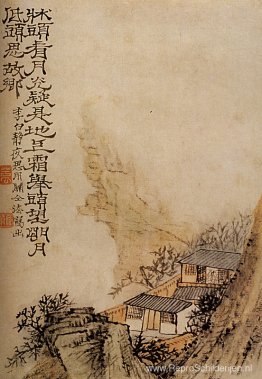 牀頭看月光疑是地上霜舉頭望朙月
低頭思故鄉
李白靜夜思用
www.ReproSchilderijen.nl